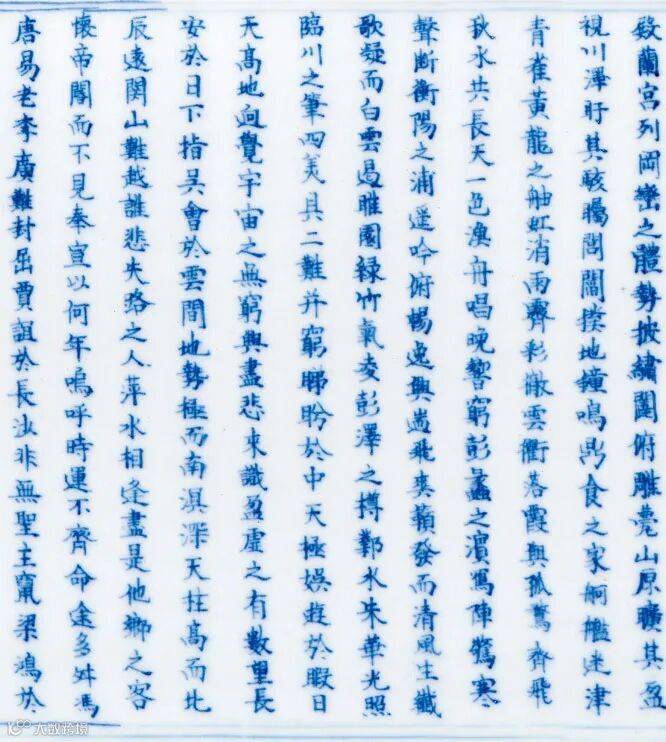 殿蘭宮列岡巒之體勢披繡闥俯雕甍山原曠其盈
視川澤盱其駭矚閭閻撲地鐘鳴鼎食之家舸艦迷津
青雀黃龍之舳虹消雨霽彩徹雲衢落霞與孤鶩齊飛
秋水共長天一色漁舟唱晚響窮彭蠡之濱鴈陣驚寒
聲斷衡陽之浦遥吟俯暢逸興遄飛爽籟發而清風生纖
歌凝而白雲遏睢園緑竹氣凌彭澤之樽鄴水朱華光照
臨川之筆四美具二難并窮睇盻於中天極娛遊於暇日
天高地迥覺宇宙之無窮興盡悲來識盈虛之有數望長
安於日下指吳會於雲間地勢極而南溟深天柱高而北
辰遠関山難越誰悲失路之人萍水相逢盡是他鄉之客
懷帝閽而不見奉宣以何年嗚呼時運不齊命途多舛馮
唐易老李廣難封屈賈誼於長沙非無聖主竄梁鴻於
大数跨境